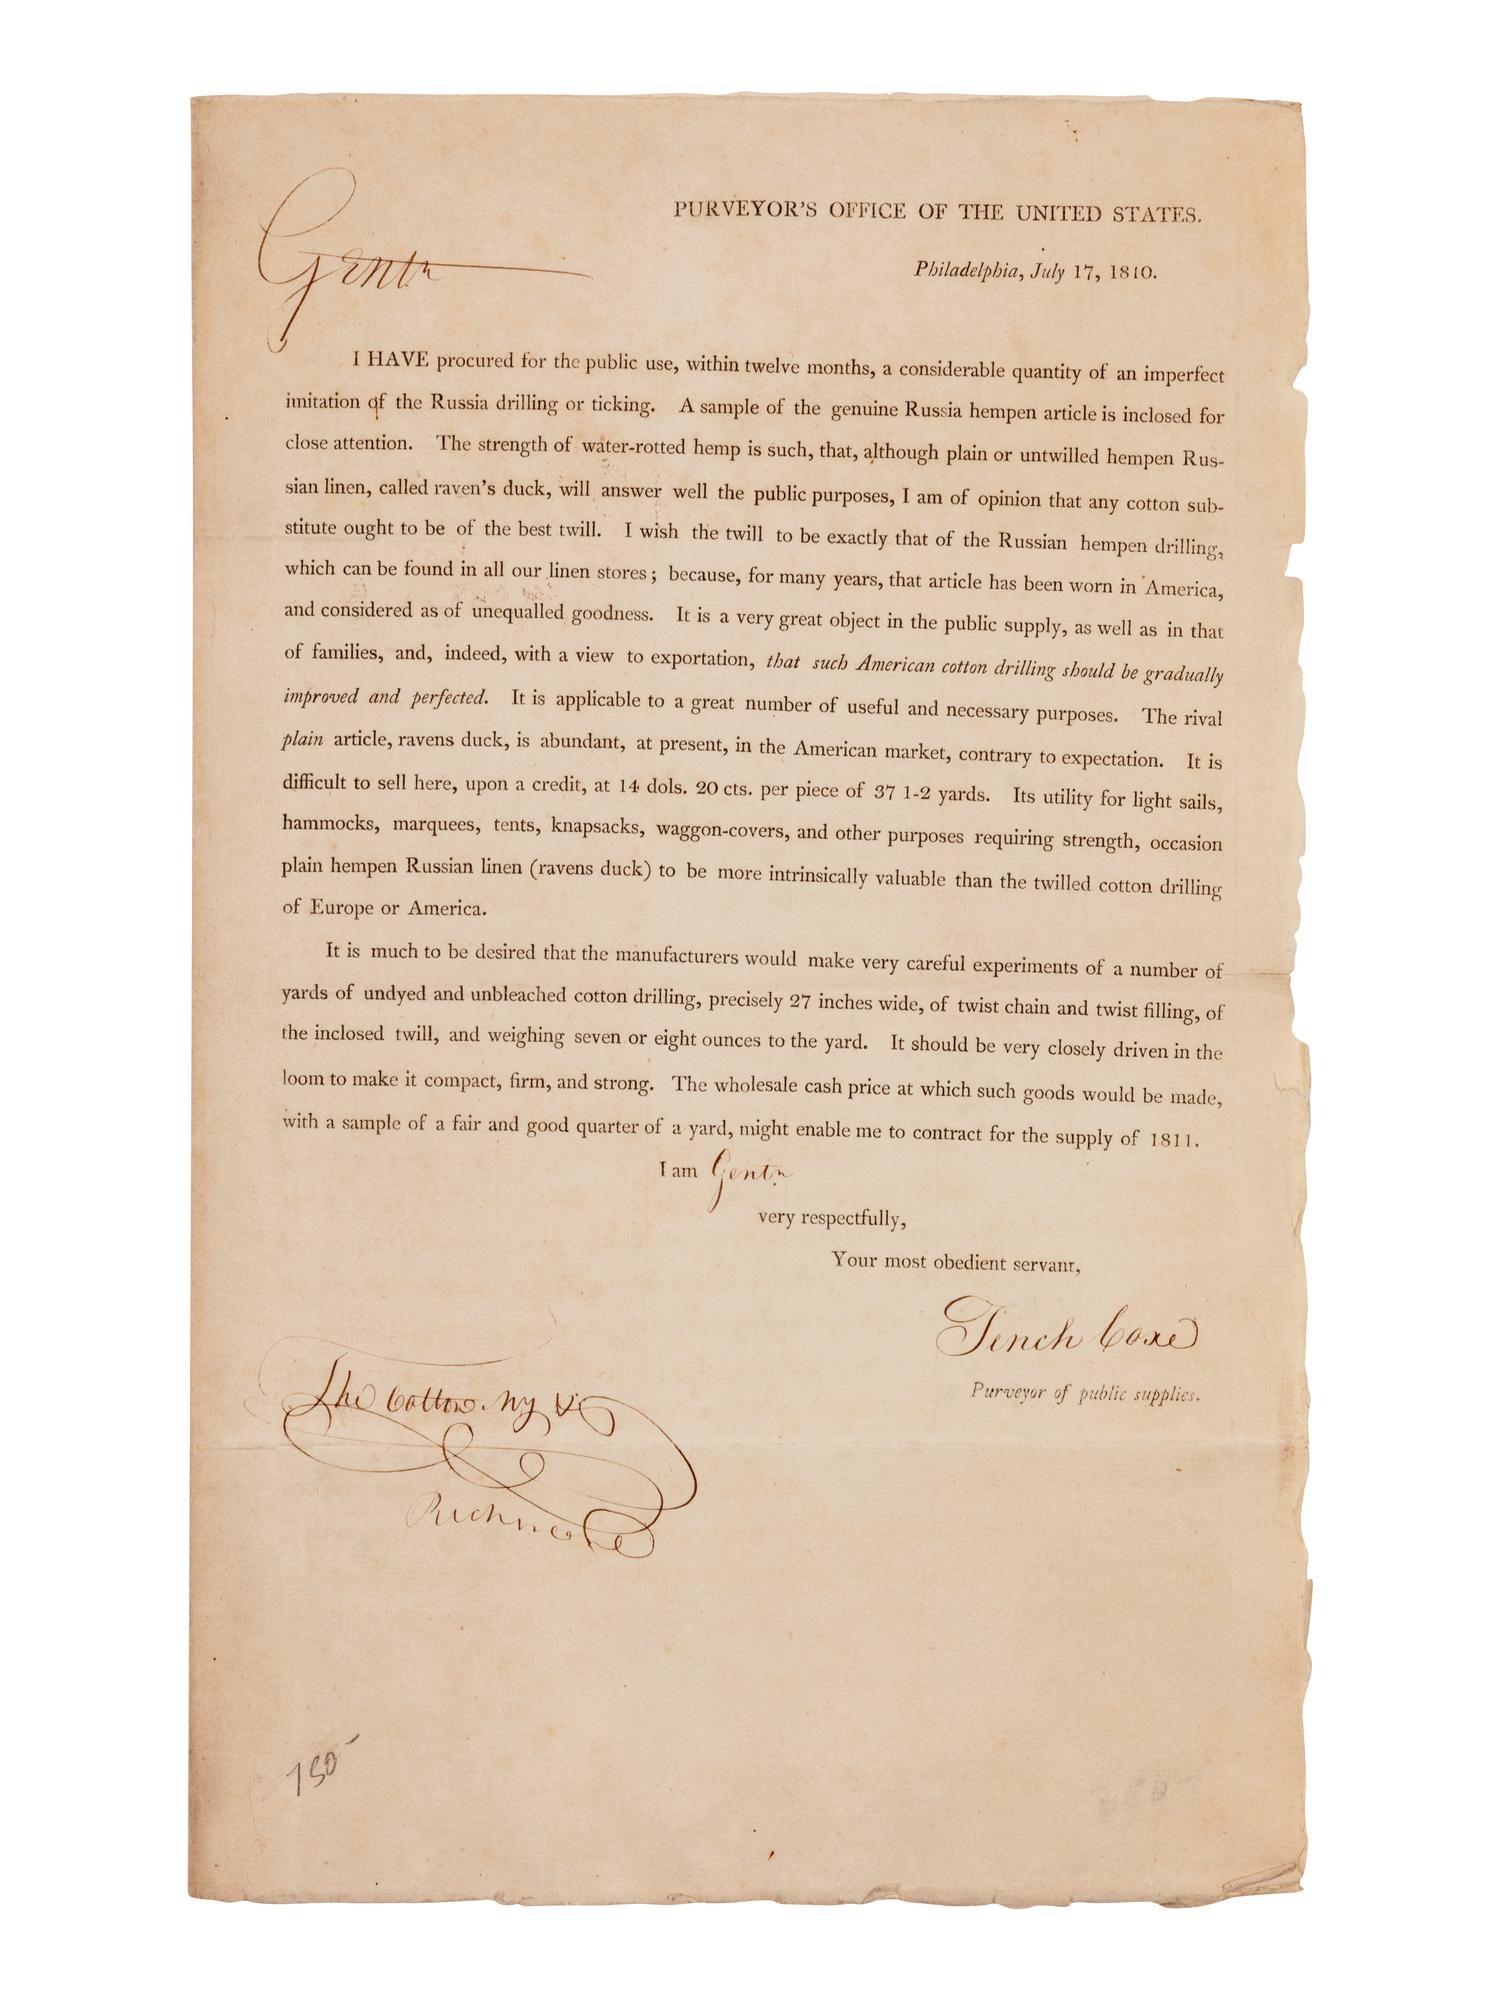 PURVEYOR'S OFFICE OF THE UNITED STATES.
Philadelphia, July 17, 1810.
Gentn
I HAVE procured for the public use, within twelve months, a considerable quantity of an imperfect
imitation of the Russia drilling or ticking. A sample of the genuine Russia hempen article is inclosed for
close attention. The strength of water-rotted hemp is such, that, although plain or untwilled hempen Rus-
sian linen, called raven's duck, will answer well the public purposes, I am of opinion that any cotton sub-
stitute ought to be of the best twill. I wish the twill to be exactly that of the Russian hempen drilling,
which can be found in all our linen stores; because, for many years, that article has been worn in America,
and considered as of unequalled goodness. It is a very great object in the public supply, as well as in that
of families, and, indeed, with a view to exportation, that such American cotton drilling should be gradually
improved and perfected. It is applicable to a great number of useful and necessary purposes. The rival
plain article, ravens duck, is abundant, at present, in the American market, contrary to expectation. It is
difficult to sell here, upon a credit, at 14 dols. 20 cts. per piece of 37 1-2 yards. Its utility for light sails,
hammocks, marquees, tents, knapsacks, waggon-covers, and other purposes requiring strength, occasion
plain hempen Russian linen (ravens duck) to be more intrinsically valuable than the twilled cotton drilling
of Europe or America.
It is much to be desired that the manufacturers would make very careful experiments of a number of
yards of undyed and unbleached cotton drilling, precisely 27 inches wide, of twist chain and twist filling, of
the inclosed twill, and weighing seven or eight ounces to the yard. It should be very closely driven in the
loom to make it compact, firm, and strong. The wholesale cash price at which such goods would be made,
with a sample of a fair and good quarter of a yard, might enable me to contract for the supply of 1811.
I am Gentn
very respectfully,
Your most obedient servant,
Tench Coxe
Purveyor of public supplies.
The Cotton My
Richmond
150